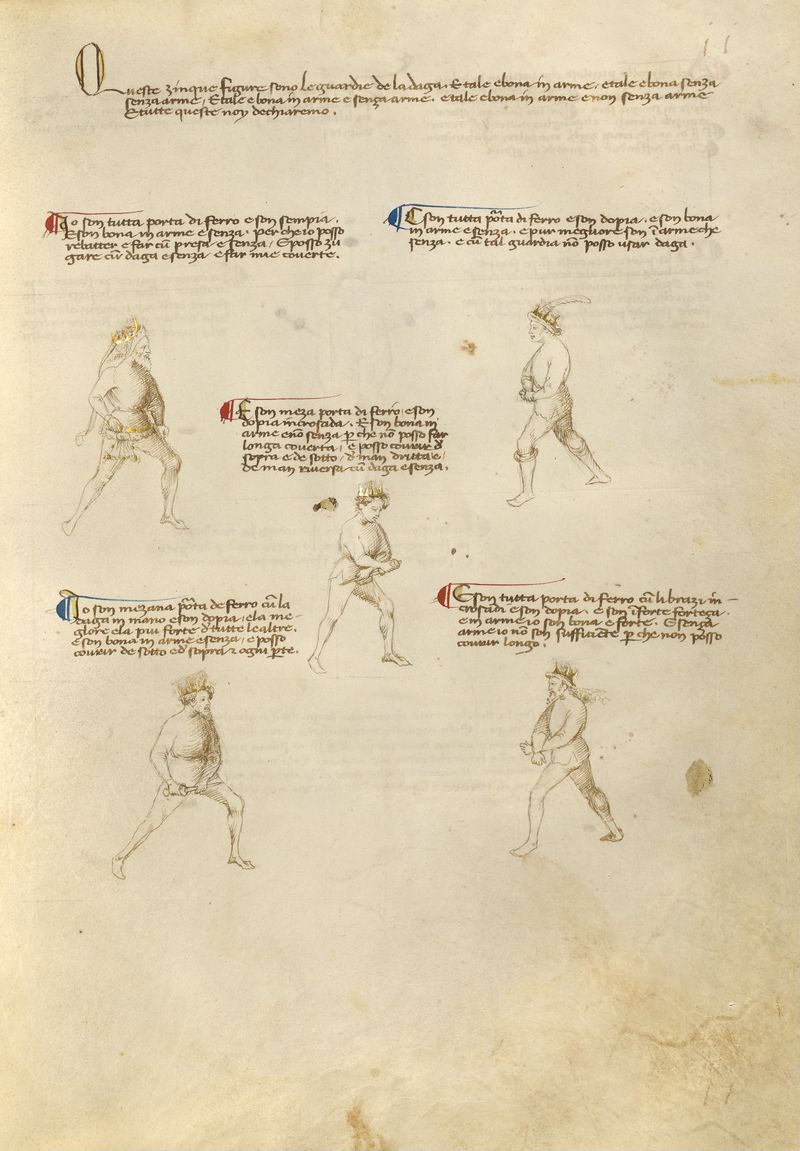 Queste zinque figure sono le guardie de la daga. E tale e bona in arme, e tale e bona senza
senza arme, E tale e bona in arme e senza arme. e tale e bona in arme e non senza arme
E tutte queste noy dechiaremo.
Io son tutta porta di ferro e son sempia.
E son bona in arme e senza. per che io posso
rebatter e far cū presa e senza, E posso zu
gare cū daga e senza e far mie couerte.
E son tutta pōta di ferro e son dopia. e son bona
in arme e senza. e pur megliore son ī arme che
senza. e cū tal guardia nō posso usar daga.
E son meza porta di ferro e son
dopia incrosada. E son bona in
arme e nō senza p che nō posso far
longa couerta, e posso courir d
sopra e de sotto, d man dritta e
de man riuersa cū daga e senza.
Io son mezana pōta de ferro cū la
daga in mano e son dopia, e la me-
glore e la piu forte d tutte le altre.
e son bona in arme e senza, e posso
courir de sotto ed sopra z ogni pte.
E son tutta porta di ferro cū li brazi in
crosadi e son dopia. e son ī forte forteça.
e in arme io son bona e forte. E sença
arme io nō son sufficiēte p che non posso
courir longo.